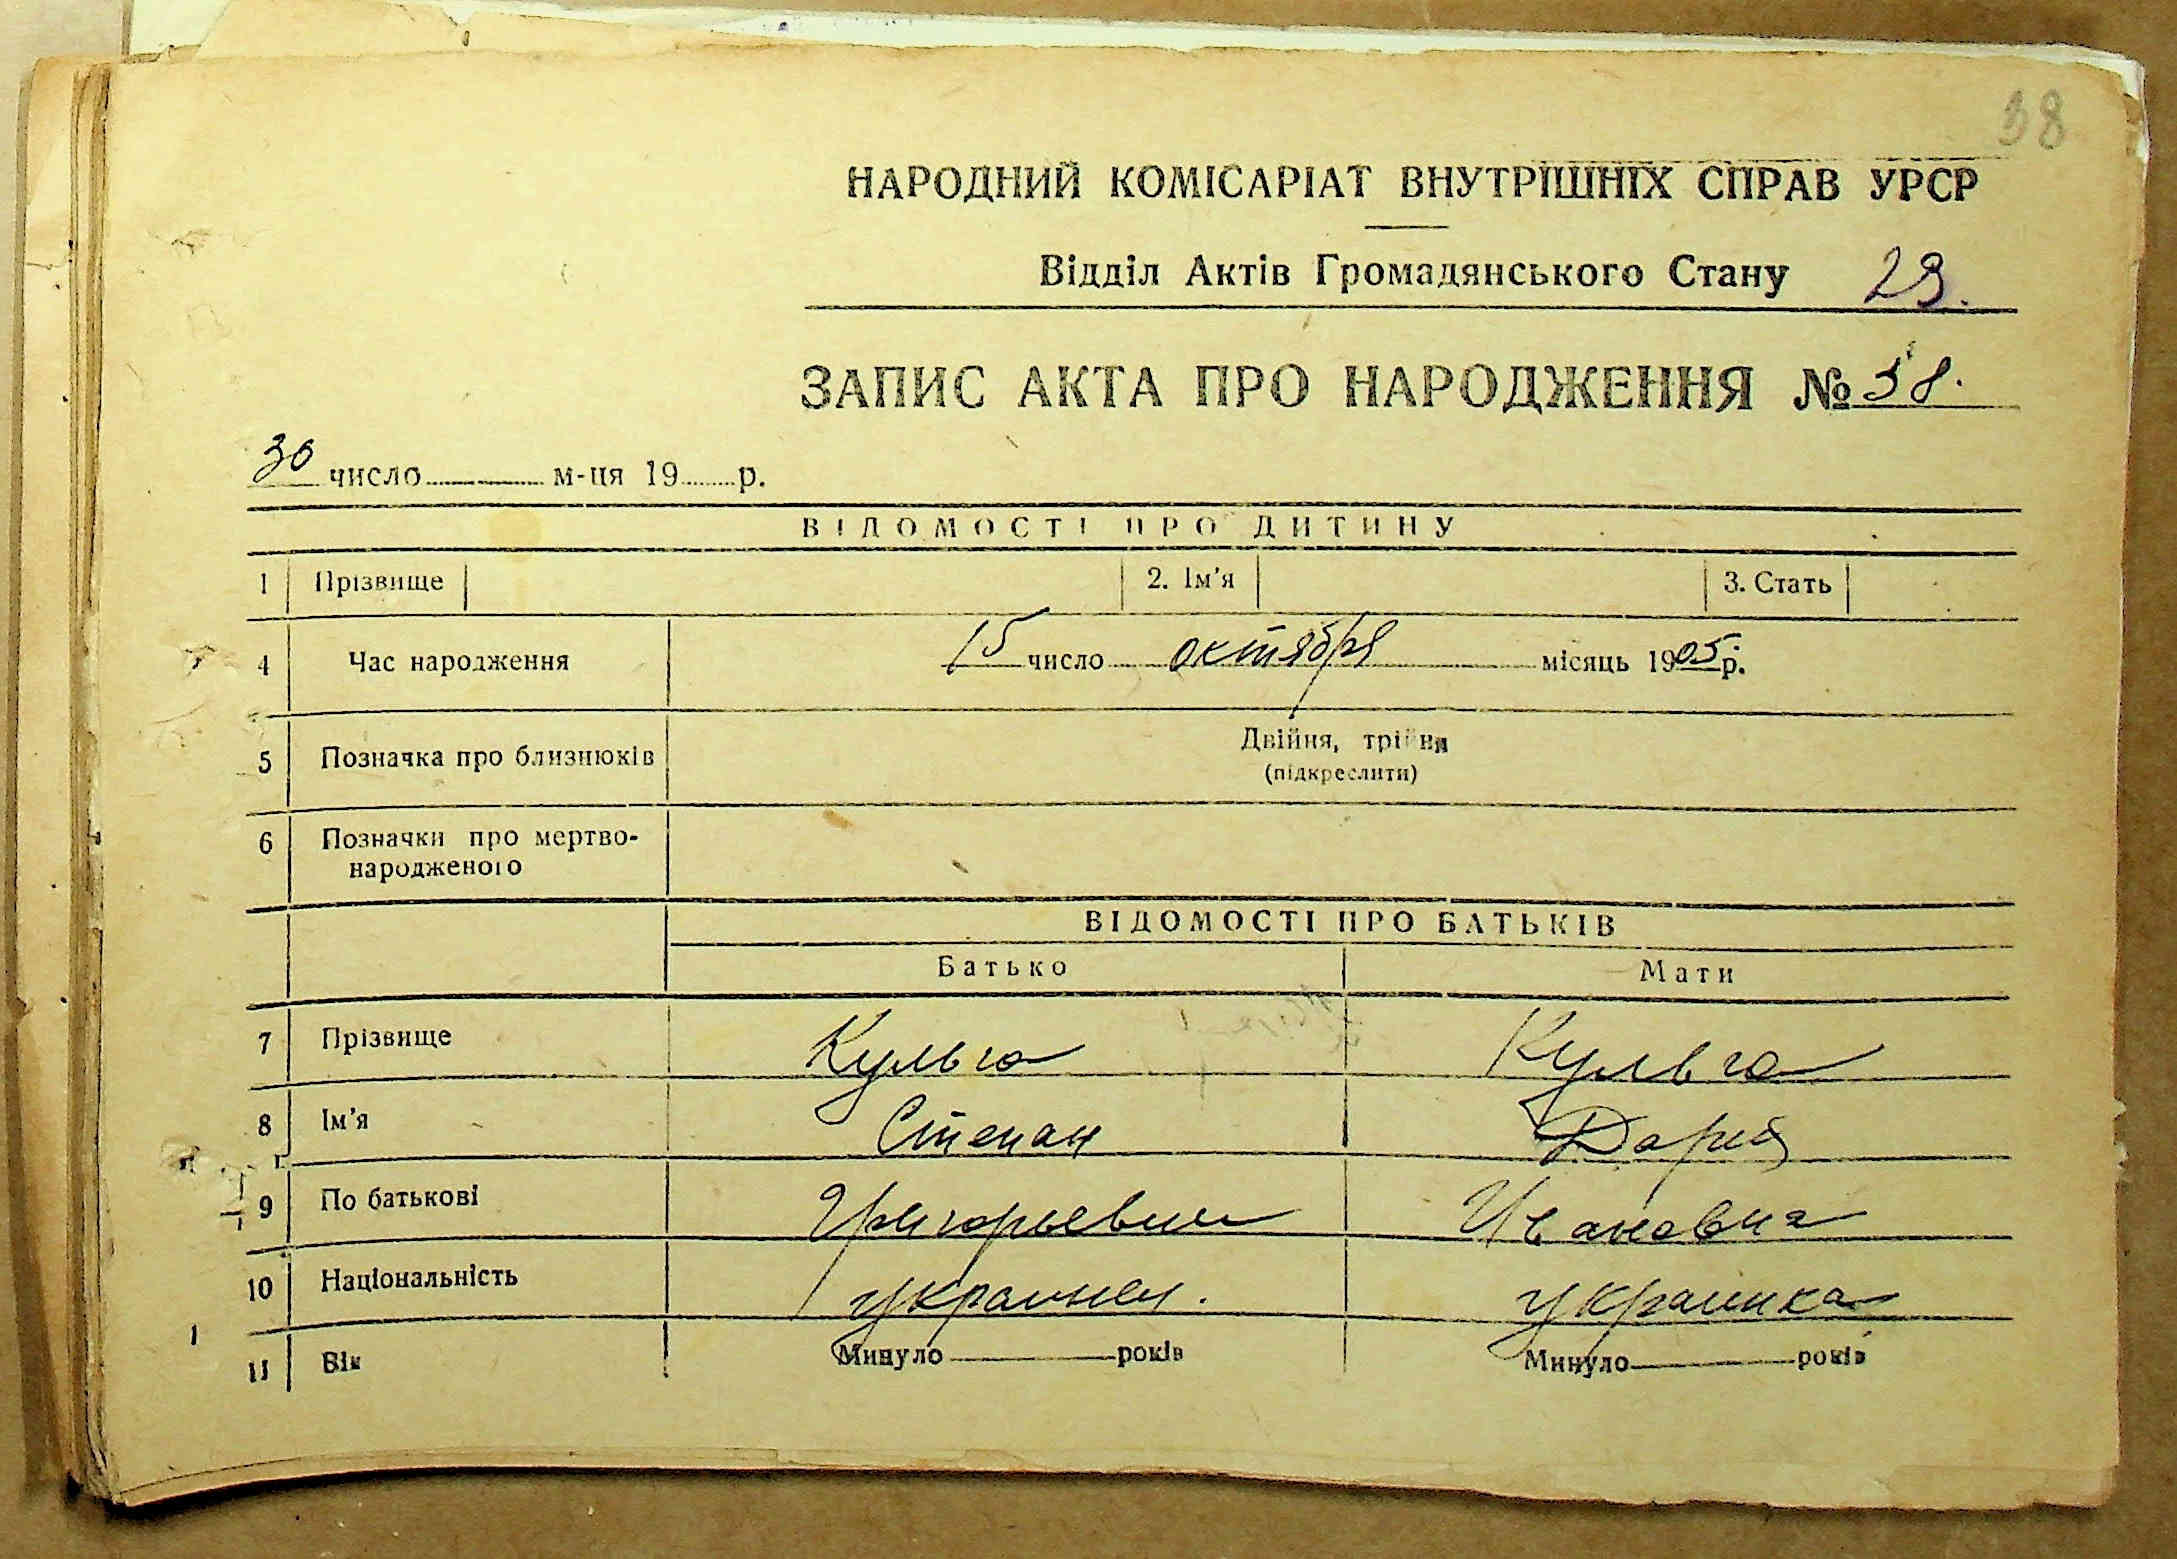 38
НАРОДНИЙ КОМІСАРІАТ ВНУТРІШНІХ СПРАВ УРСР
Відділ Актів Громадянського Стану 29.
ЗАПИС АКТА ПРО НАРОДЖЕННЯ № 38.
30 число м-ця 19 р.
ВІДОМОСТІ ПРО ДИТИНУ
1 Прізвище 2. Ім'я 3. Стать
4 Час народження 15 число октября місяць 1905 р.
5 Позначка про близнюків Двійня, трійня
(підкреслити)
6 Позначки про мертво-
народженого
ВІДОМОСТІ ПРО БАТЬКІВ
Батько Мати
7 Прізвище Кульга Кульга
8 Ім'я Степан Дария
9 По батькові Григорьевич Ивановна
10 Національність украинец. украинка
11 Вік Минуло років Минуло років